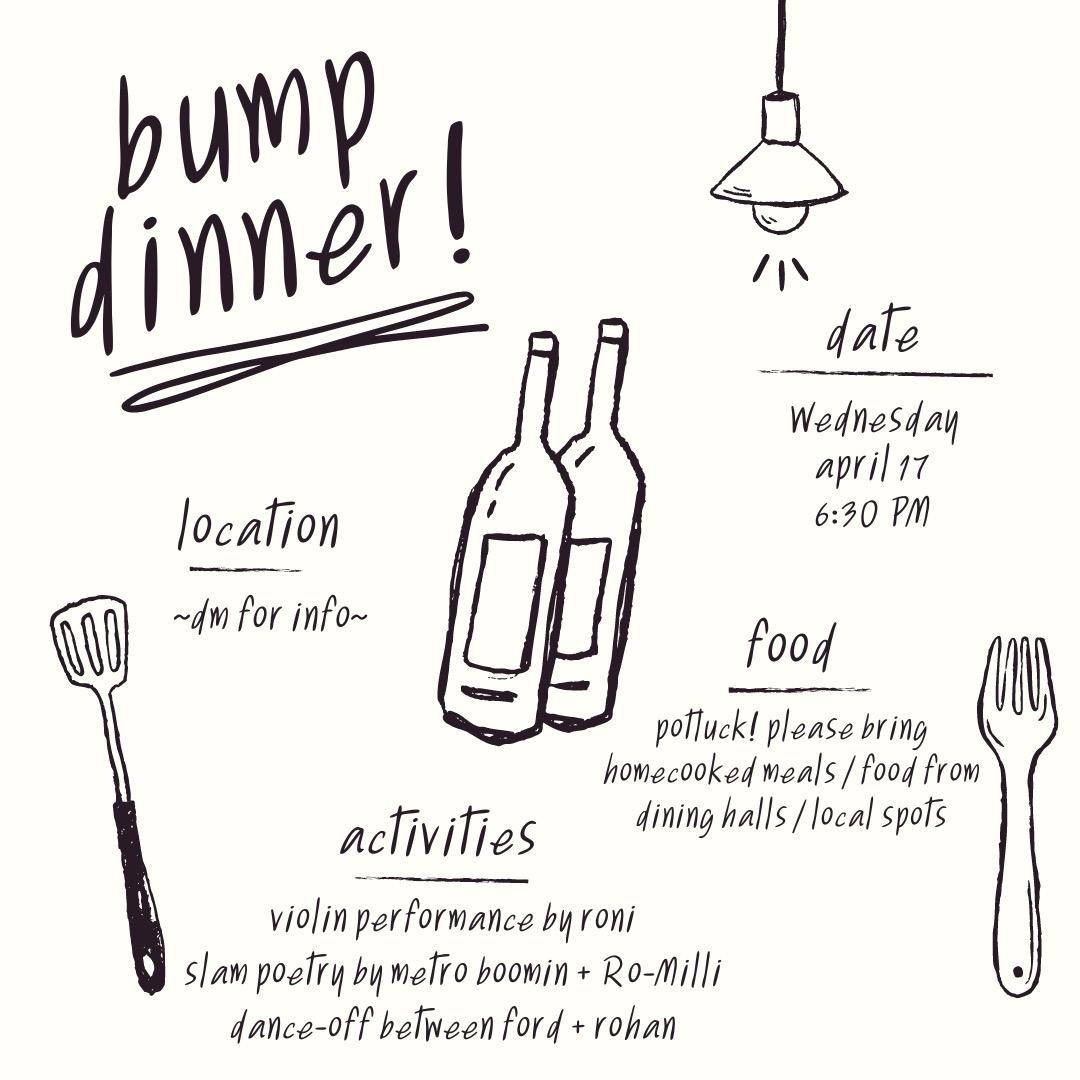 bump
dinner!
date
Wednesday
april 17
6:30 PM
location
~dm for info~
food
potluck! please bring
homecooked meals / food from
dining halls / local spots
activities
violin performance by roni
slam poetry by metro boomin + Ro-Milli
dance-off between ford + rohan